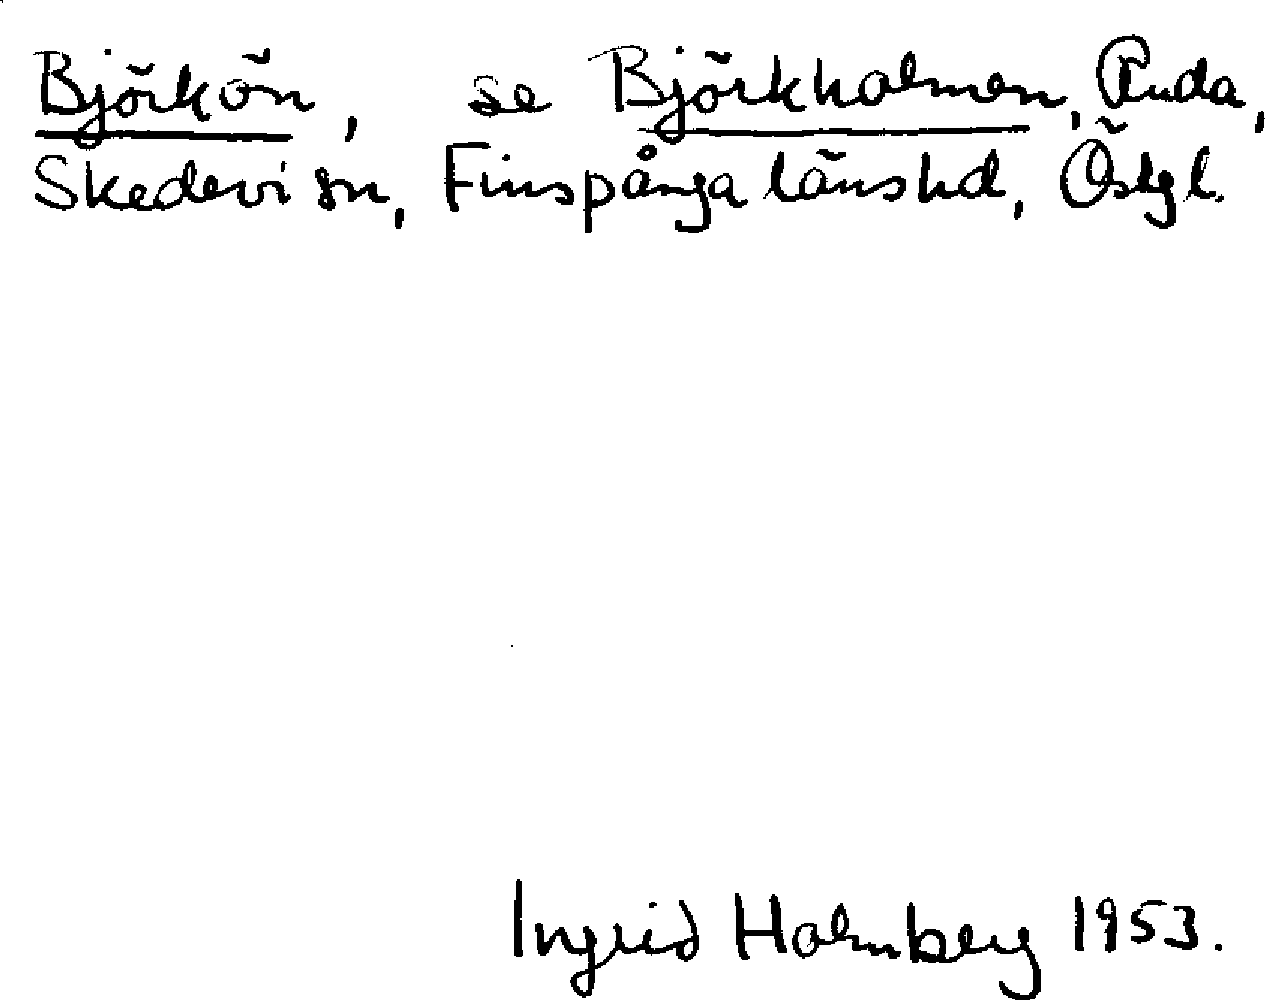 Björkön, se Björkholmen, Ruda,
Skedevi sn, Finspånga länshd, Östgl.
Ingrid Holmberg 1953.